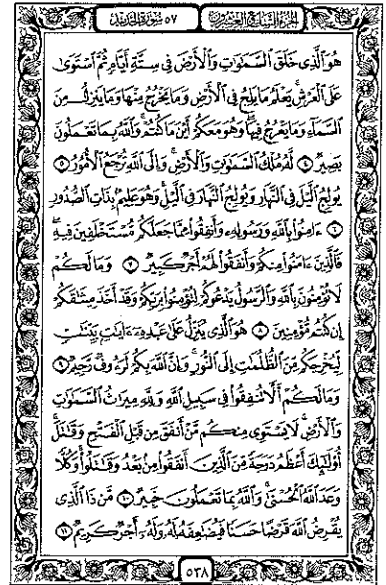 الجزء السابع والعشرون
٥٧ سورة الحديد
هُوَ ٱلَّذِى خَلَقَ ٱلسَّمَٰوَٰتِ وَٱلْأَرْضَ فِى سِتَّةِ أَيَّامٍ ثُمَّ ٱسْتَوَىٰ
عَلَى ٱلْعَرْشِ يَعْلَمُ مَا يَلِجُ فِى ٱلْأَرْضِ وَمَا يَخْرُجُ مِنْهَا وَمَا يَنزِلُ مِنَ
ٱلسَّمَآءِ وَمَا يَعْرُجُ فِيهَا وَهُوَ مَعَكُمْ أَيْنَ مَا كُنتُمْ وَٱللَّهُ بِمَا تَعْمَلُونَ
بَصِيرٌ ٤ لَّهُۥ مُلْكُ ٱلسَّمَٰوَٰتِ وَٱلْأَرْضِ وَإِلَى ٱللَّهِ تُرْجَعُ ٱلْأُمُورُ ٥
يُولِجُ ٱلَّيْلَ فِى ٱلنَّهَارِ وَيُولِجُ ٱلنَّهَارَ فِى ٱلَّيْلِ وَهُوَ عَلِيمٌۢ بِذَاتِ ٱلصُّدُورِ
٦ ءَامِنُوا۟ بِٱللَّهِ وَرَسُولِهِۦ وَأَنفِقُوا۟ مِمَّا جَعَلَكُم مُّسْتَخْلَفِينَ فِيهِ
فَٱلَّذِينَ ءَامَنُوا۟ مِنكُمْ وَأَنفَقُوا۟ لَهُمْ أَجْرٌ كَبِيرٌ ٧ وَمَا لَكُمْ
لَا تُؤْمِنُونَ بِٱللَّهِ وَٱلرَّسُولُ يَدْعُوكُمْ لِتُؤْمِنُوا۟ بِرَبِّكُمْ وَقَدْ أَخَذَ مِيثَٰقَكُمْ
إِن كُنتُم مُّؤْمِنِينَ ٨ هُوَ ٱلَّذِى يُنَزِّلُ عَلَىٰ عَبْدِهِۦٓ ءَايَٰتٍۭ بَيِّنَٰتٍ
لِّيُخْرِجَكُم مِّنَ ٱلظُّلُمَٰتِ إِلَى ٱلنُّورِ وَإِنَّ ٱللَّهَ بِكُمْ لَرَءُوفٌ رَّحِيمٌ ٩
وَمَا لَكُمْ أَلَّا تُنفِقُوا۟ فِى سَبِيلِ ٱللَّهِ وَلِلَّهِ مِيرَٰثُ ٱلسَّمَٰوَٰتِ
وَٱلْأَرْضِ لَا يَسْتَوِى مِنكُم مَّنْ أَنفَقَ مِن قَبْلِ ٱلْفَتْحِ وَقَٰتَلَ
أُو۟لَٰٓئِكَ أَعْظَمُ دَرَجَةً مِّنَ ٱلَّذِينَ أَنفَقُوا۟ مِنۢ بَعْدُ وَقَٰتَلُوا۟ وَكُلًّا
وَعَدَ ٱللَّهُ ٱلْحُسْنَىٰ وَٱللَّهُ بِمَا تَعْمَلُونَ خَبِيرٌ ١٠ مَّن ذَا ٱلَّذِى
يُقْرِضُ ٱللَّهَ قَرْضًا حَسَنًا فَيُضَٰعِفَهُۥ لَهُۥ وَلَهُۥٓ أَجْرٌ كَرِيمٌ ١١
٥٣٨